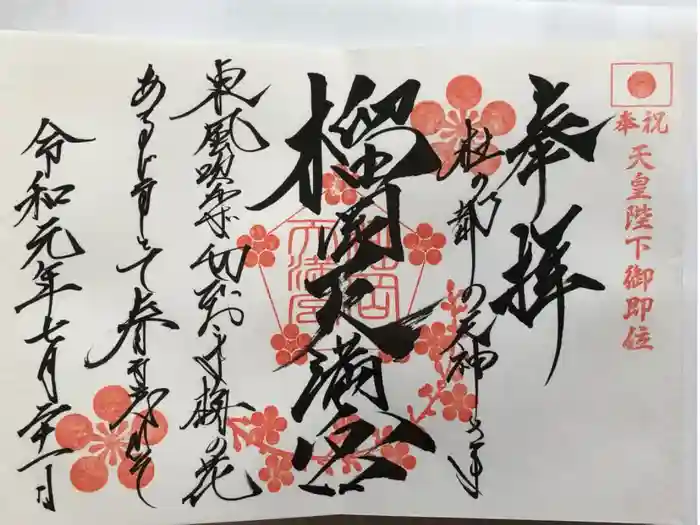 奉祝
天皇陛下御即位
奉拝
杜の都の天神さま
榴岡天満宮
東風吹かば匂ひおこせよ梅の花
あるじなしとて春な忘れそ
令和元年七月廿一日